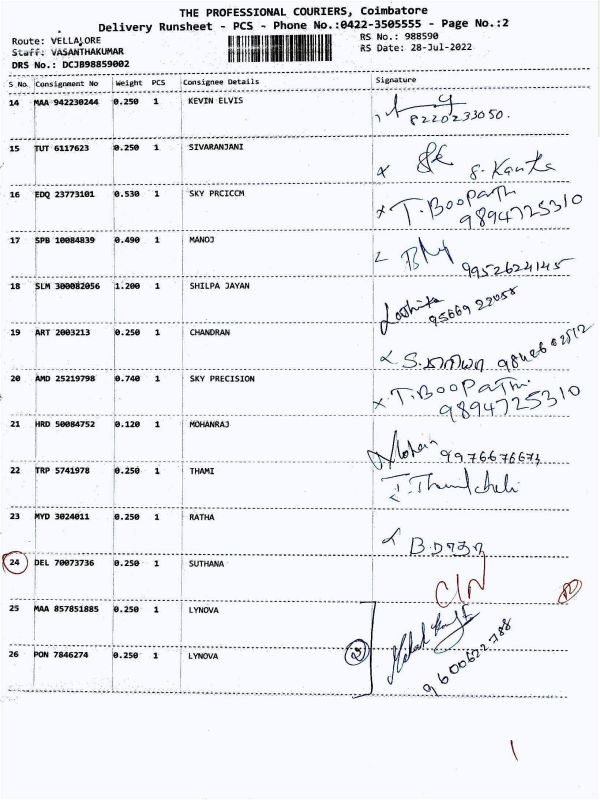 THE PROFESSIONAL COURIERS, Coimbatore
Delivery Runsheet - PCS - Phone No.:0422-3505555 - Page No.:2
Route: VELLALORE
RS No.: 988590
Staff: VASANTHAKUMAR
RS Date: 28-Jul-2022
DRS No.: DCJB98859002
S No. Consignment No Weight PCS Consignee Details Signature
14 MAA 942230244 0.250 1 KEVIN ELVIS
8220233050.
15 TUT 6117623 0.250 1 SIVARANJANI
16 EDQ 23773101 0.530 1 SKY PRCICCM
x T. Boopathi
9894725310
17 SPB 10084839 0.490 1 MANOJ
9952624145
18 SLM 300082056 1.200 1 SHILPA JAYAN
95669 22058
19 ART 2003213 0.250 1 CHANDRAN
20 AMD 25219798 0.740 1 SKY PRECISION
x T. Boopathi
9894725310
21 HRD 50084752 0.120 1 MOHANRAJ
22 TRP 5741978 0.250 1 THAMI
23 MYD 3024011 0.250 1 RATHA
24 DEL 70073736 0.250 1 SUTHANA
C/N
25 MAA 857851885 0.250 1 LYNOVA
26 PON 7846274 0.250 1 LYNOVA
9600622788